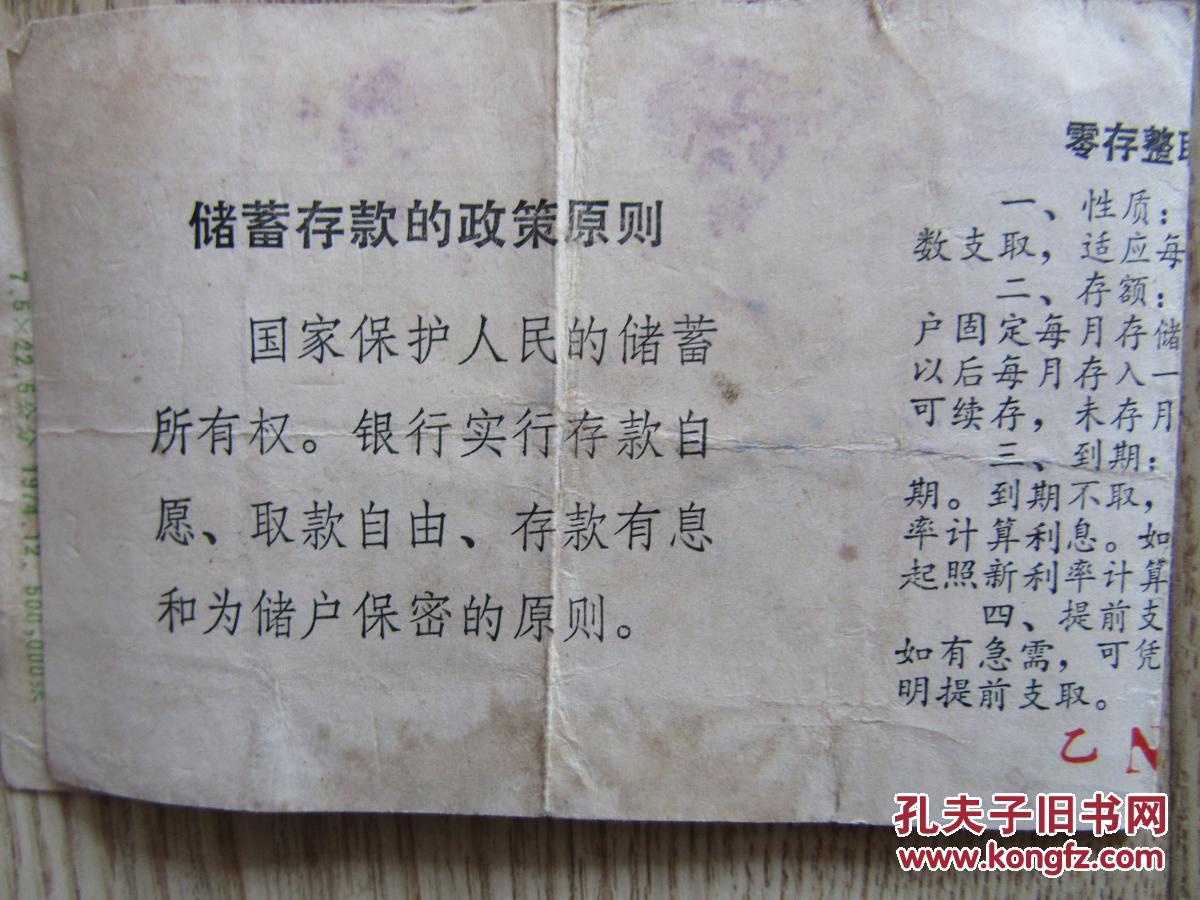 储蓄存款的政策原则
国家保护人民的储蓄
所有权。银行实行存款自
愿、取款自由、存款有息
和为储户保密的原则。
零存整
一、性质：
数支取，适应每
二、存额：
户固定每月存储
以后每月存入一
可续存，未存月
三、到期：
期。到期不取，
率计算利息。如
起照新利率计算
四、提前支
如有急需，可凭
明提前支取。
乙 N
7.5×22.5公分 1974.12. 500,000
孔夫子旧书网
www.kongfz.com